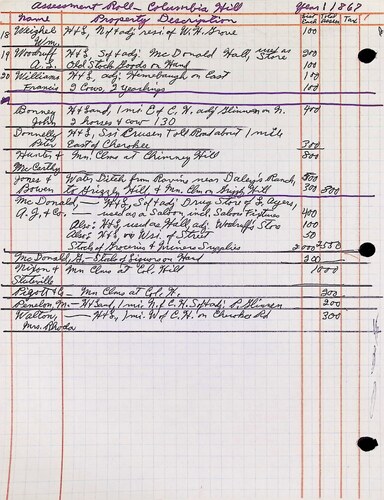 Assessment Roll - Columbia Hill Year 1867
Name Property Description Tax
18 Weighel H+L, N+adj resi of W.H. Grove 100
Wm.
19 Woodruff H+L, S of+adj Mc Donald Hall, used as Store 200
A. L. Old Stock Goods on Hand 100
20 Williams H+L, adj. Himebaugh on East 100
Francis 2 Cows, 2 Yearlings
Bonney H+Land, 1 mi E of C. H. adj on N. 400
John 2 horses + cow - 130
Donnelly H+L, Toll Road about 1 mile
Peter East of Cherokee 300
Hunter + Mn. Clms at Chimney Hill 800
McCarthy
Jones + Water Ditch from Ravine near Daley's Ranch, 500
Bowen to Grizzly Hill + Mn Clm on Grizzly Hill 300 800
Mc Donald, — H+L, S of+adj Drug Store of L. Ayers,
A. J. + Co. — used as a Saloon incl. Saloon Fixtures 400
Also: H+L, used as Hall, adj Woodruff's Store 100
Also: H+L, on W. si. of Street 50
Stock of Groceries + Miners Supplies 2000 2550
Mc Donald, G. — Stock of Liquors on Hand 200
Nixon + Mn Clms at Col. Hill 1000
Pigott + Co — Mn Clms at Col. H. 200
— H+Land, 1 mi. N of C. H. S of+adj P. 200
Walton, — H+L, 1 mi. W of C. H. on Cherokee Rd 300
Mrs. Rhoda